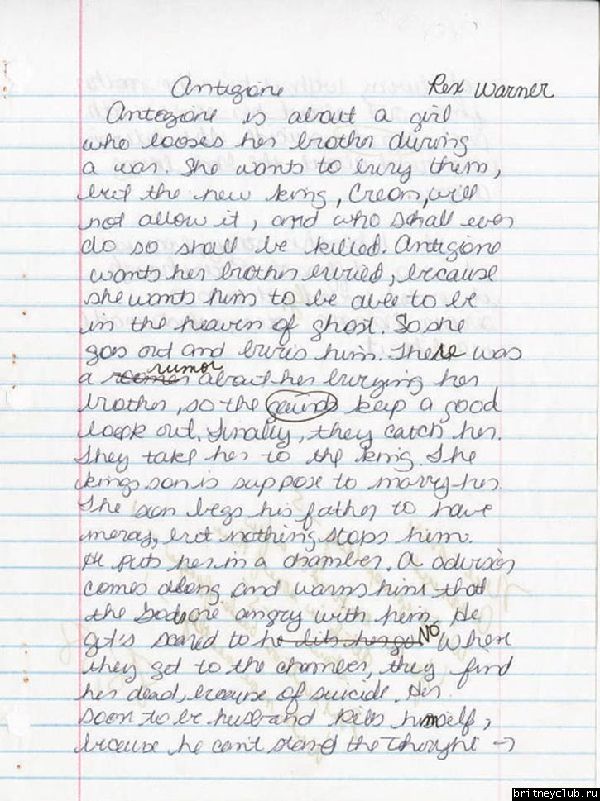 Antigione Rex Warner
Antegione is about a girl
who looses her brother during
a war. She wants to bury them,
but the new king, Creon, will
not allow it, and who schall ever
do so shall be killed. Antigione
wants her brother buried, because
she wants him to be able to be
in the heaven of ghost. So she
goes out and buries him. There was
a rumor about her burying her
brother, so the gaurds keep a good
look out. Finally, they catch her.
They take her to the king. The
kings son is suppose to marry her.
The son begs his father to have
mercy, but nothing stops him.
He puts her in a chamber. A advisor
comes along and warns him that
the Gods are angry with him. He
gt's scared to he lets her go NO When
they got to the chamber, they find
her dead, because of suicide. Her
soon to be husband kills himself,
because he can't stand the thought →
britneyclub.ru